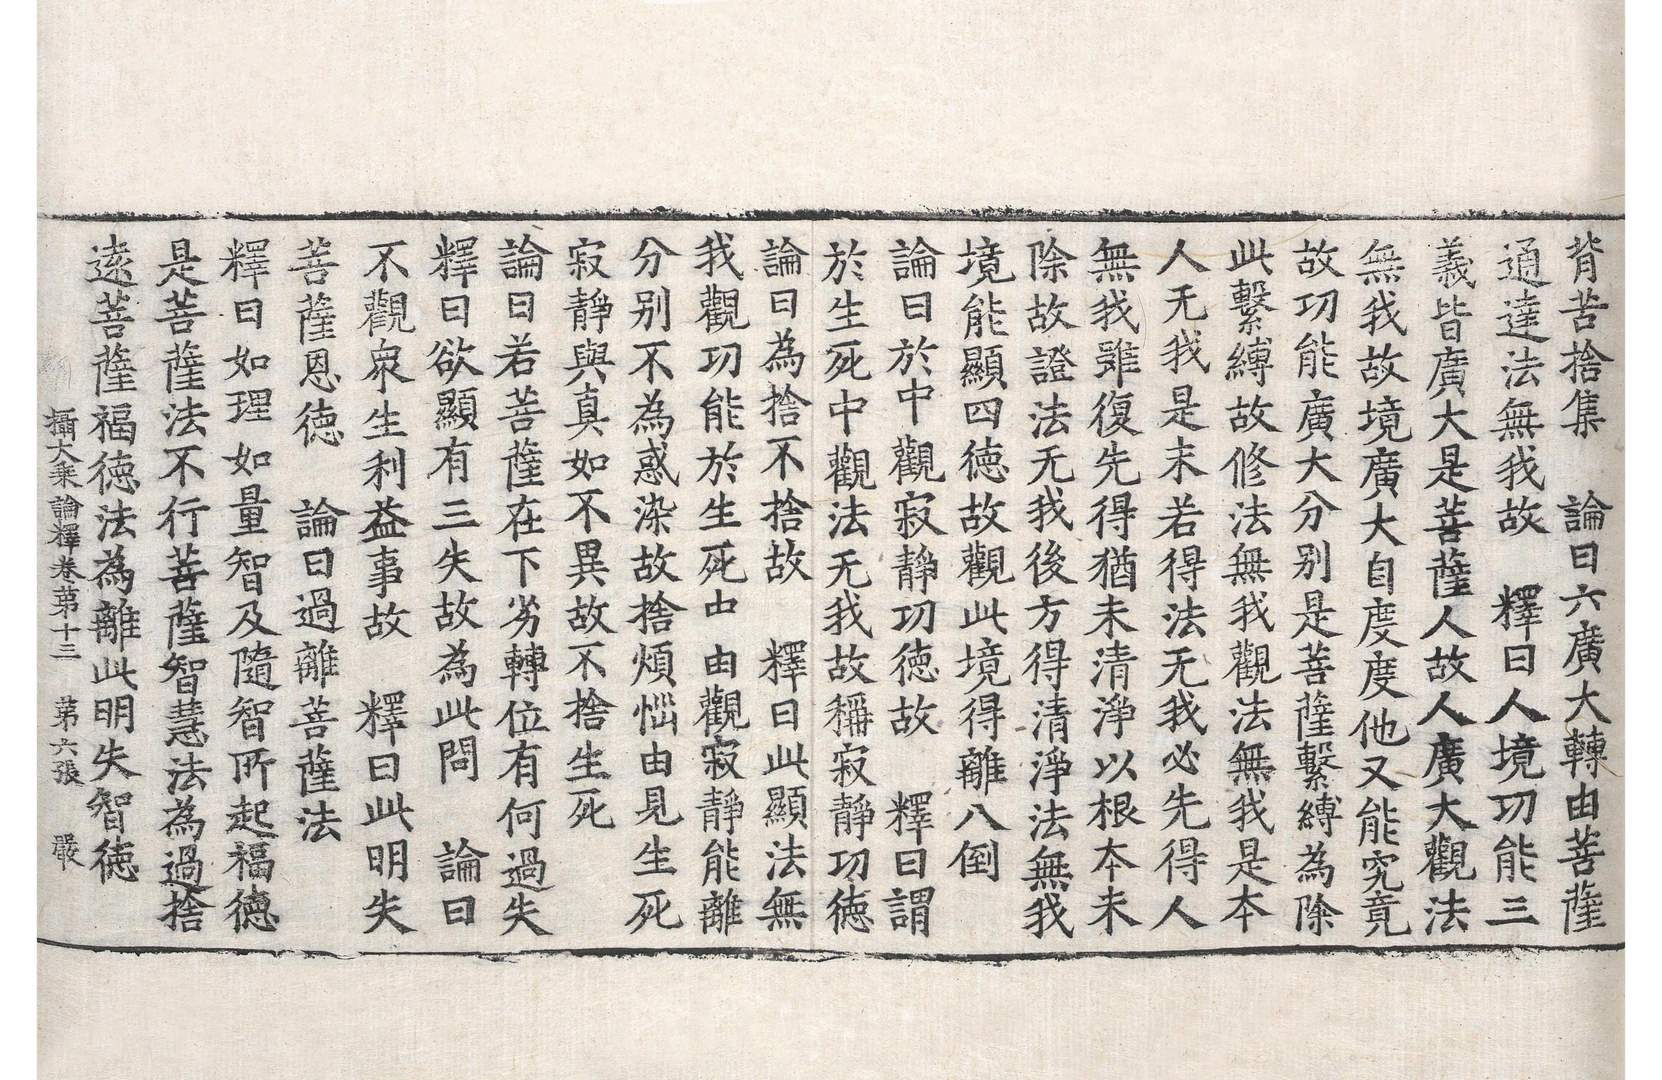 背苦捨集　論曰六廣大轉由菩薩
通達法無我故　釋曰人境功能三
義皆廣大是菩薩人故人廣大觀法
無我故境廣大自度度他又能究竟
故功能廣大分别是菩薩繫縛為除
此繫縛故修法無我觀法無我是本
人无我是末若得法无我必先得人
無我雖復先得猶未清淨以根本未
除故證法无我後方得清淨法無我
境能顯四徳故觀此境得離八倒
論曰於中觀寂静功徳故　釋曰謂
於生死中觀法无我故稱寂静功徳
論曰為捨不捨故　釋曰此顯法無
我觀功能於生死中由觀寂静能離
分别不為惑染故捨煩惱由見生死
寂靜與真如不異故不捨生死
論曰若菩薩在下劣轉位有何過失
釋曰欲顯有三失故為此問　論曰
不觀衆生利益事故　釋曰此明失
菩薩恩徳　論曰過離菩薩法
釋曰如理如量智及隨智所起福德
是菩薩法不行菩薩智慧法為過捨
逺菩薩福徳法為離此明失智徳
攝大乘論釋卷第十三　第六張　嚴